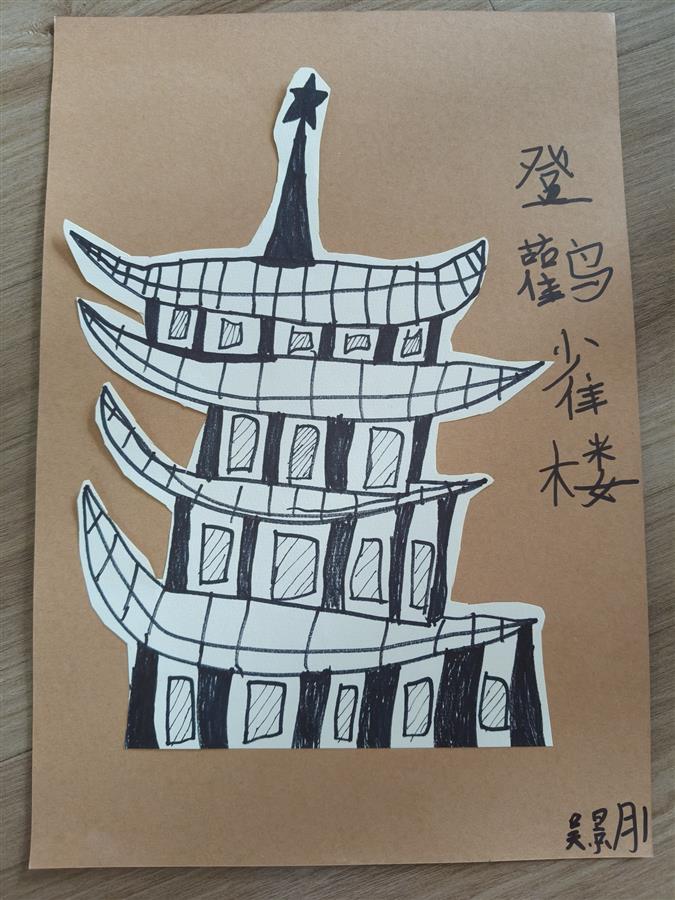 登鹳雀楼
吴景